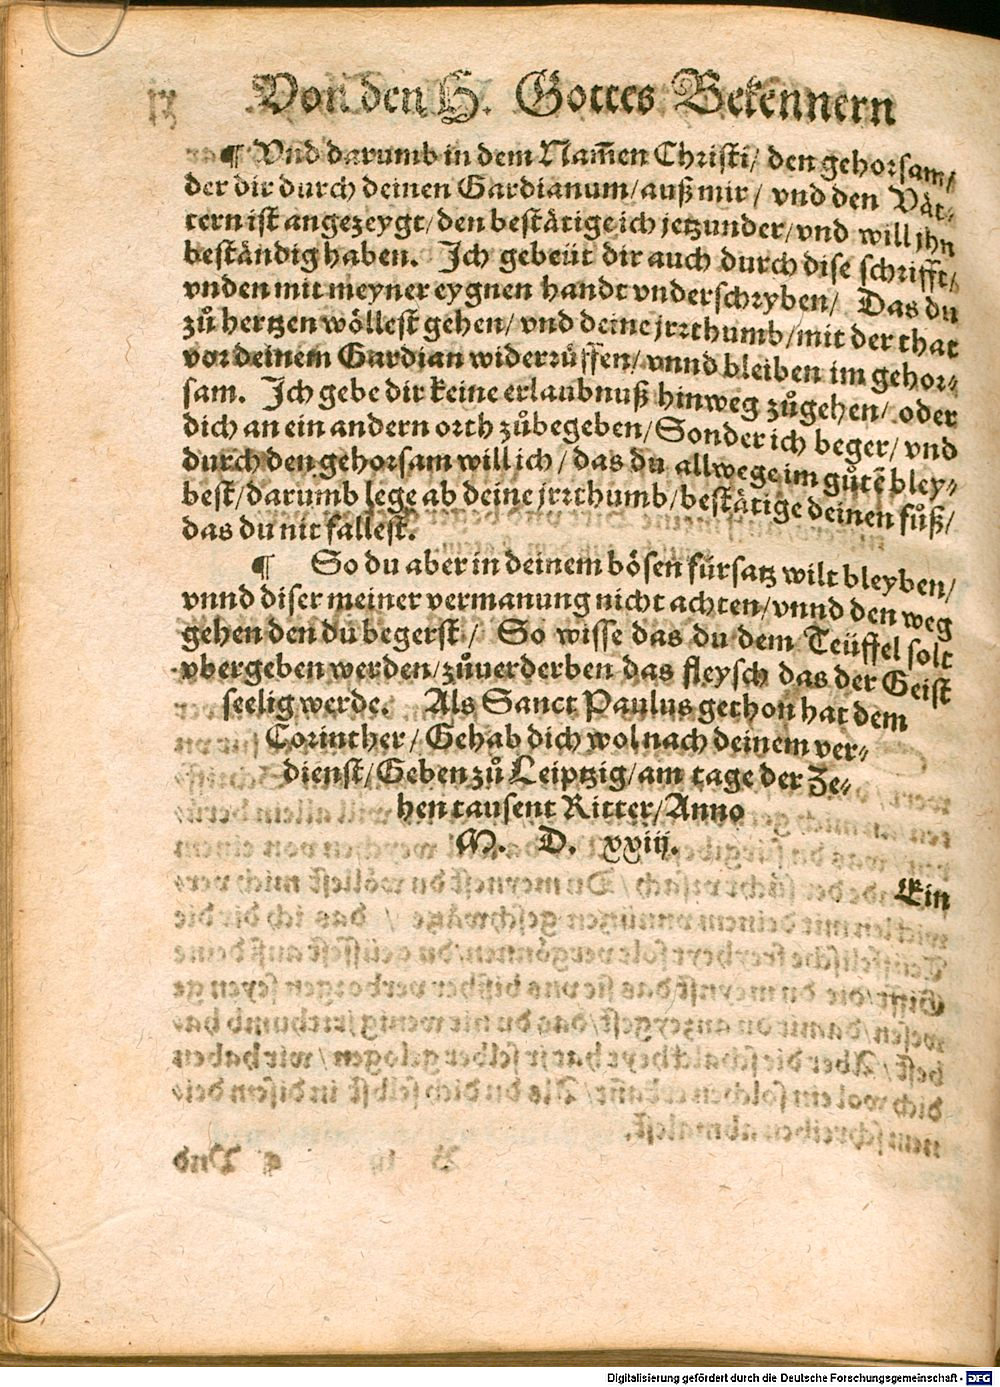 Von den H. Gottes Bekennern
¶ Vnd darumb in dem Nam̃en Christi/ den gehorsam/
der dir durch deinen Gardianum/auß mir/ vnd den Vät-
tern ist angezeygt/den bestätige ich jetzunder/vnd will jhn
beständig haben. Ich gebeüt dir auch durch dise schrifft/
vnden mit meyner eygnen handt vnderschryben/ Das du
zů hertzen wöllest gehen/ vnd deine jrrthumb/mit der that
vor deinem Gardian widerrůffen/vnnd bleiben im gehor-
sam. Ich gebe dir keine erlaubnuß hinweg zůgehen/ oder
dich an ein andern orth zůbegeben/Sonder ich beger/ vnd
durch den gehorsam will ich/das du allwege im gůtẽ bley-
best/darumb lege ab deine jrrthumb/bestätige deinen fůß/
das du nit fallest.
¶ So du aber in deinem bösen fürsatz wilt bleyben/
vnnd diser meiner vermanung nicht achten/vnnd den weg
gehen den du begerst/ So wisse das du dem Teüffel solt
vbergeben werden/zůuerderben das fleysch das der Geist
seelig werde. Als Sanct Paulus gethon hat dem
Corinther/Gehab dich wol nach deinem ver-
dienst/Geben zů Leiptzig/am tage der Ze-
hen tausent Ritter/Anno
M. D. xxiij.
Ein
Digitalisierung gefördert durch die Deutsche Forschungsgemeinschaft - DFG